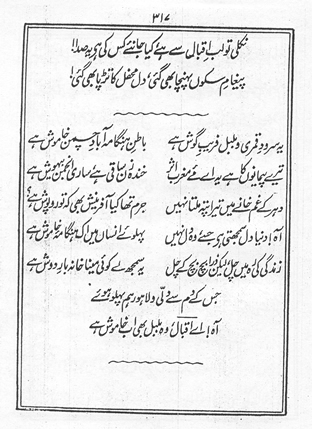 ۳۱۷
نکلی تو لب اقبال سے ہے کیا جانئے کس کی ہے یہ صدا!
پیغامِ سکوں پہنچا بھی گئی، دل محفل کا تڑپا بھی گئی!
یہ سرودِ قمری و بلبل فریبِ گوش ہے باطنِ ہنگامہ آبادِ چمن خاموش ہے
تیرے پیمانوں کا ہے یہ اے مئے مغرب اثر خندہ زن ساقی ہے ساری انجمن بیہوش ہے
دہر کے غم خانے میں تیرا پتہ ملتا نہیں جرم تھا کیا آفرینش بھی کہ تو روپوش ہے؟
آہ! دنیا دل سمجھتی ہے جسے وہ دل نہیں پہلوئے انساں میں اک ہنگامۂ خاموش ہے
زندگی کی رہ میں چل، لیکن ذرا بچ بچ کے چل یہ سمجھ لے کوئی مینا خانہ بارِ دوش ہے
جس کے دم سے دلی و لاہور ہم پہلو ہوئے
آہ! اے اقبال وہ بلبل بھی اب خاموش ہے